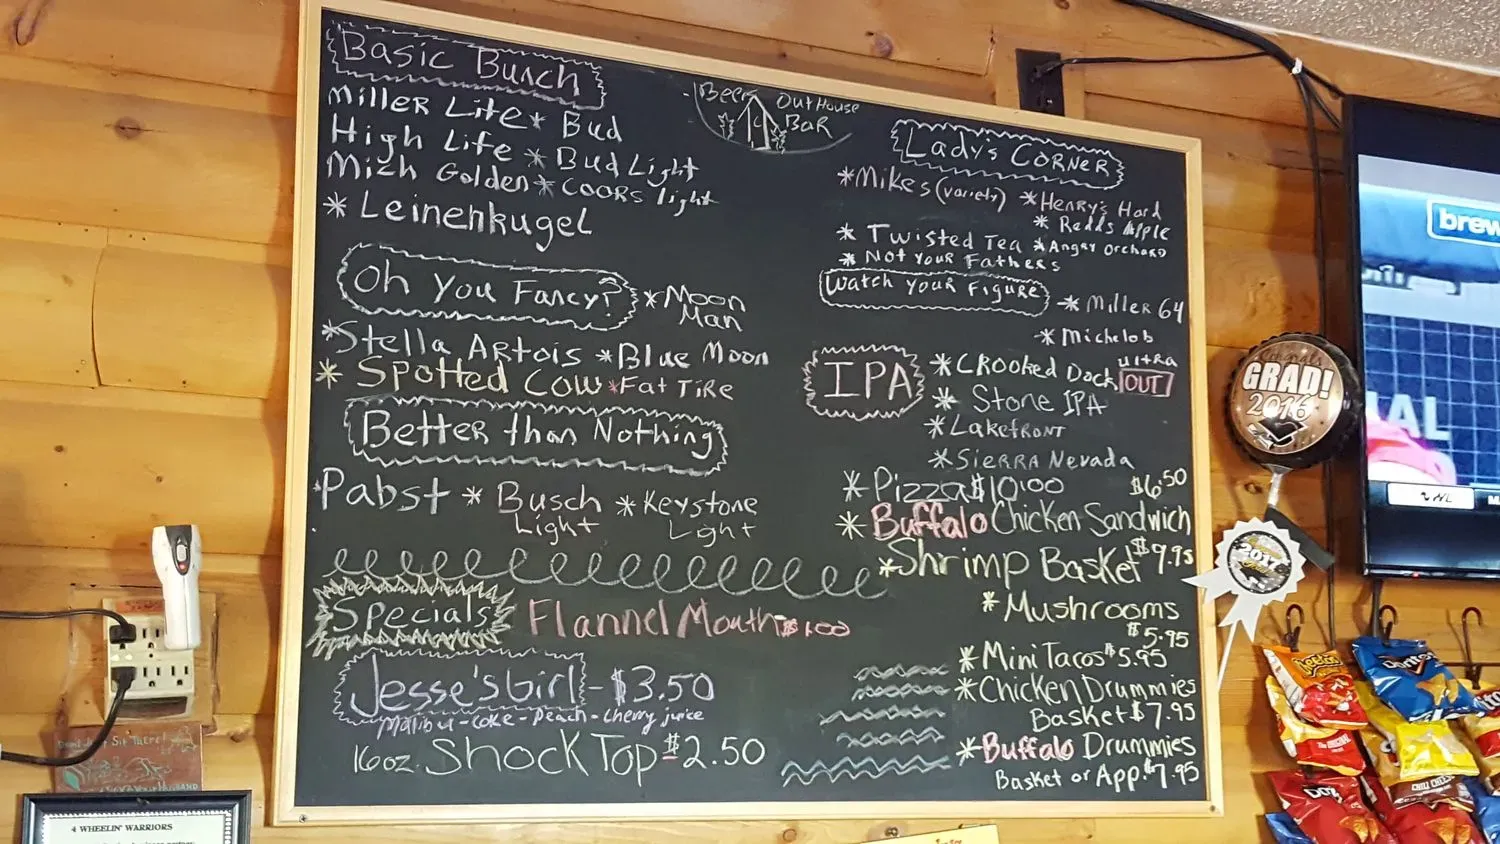 Basic Bunch
Miller Lite * Bud
High Life * Bud Light
Mich Golden * Coors light
* Leinenkugel
Oh You Fancy?
* Moon
Man
* Stella Artois * Blue Moon
* Spotted Cow * Fat Tire
Better than Nothing
Pabst * Busch
Light
* Keystone
Light
Specials
Flannel Mouth $1.00
Jesse's Girl - $3.50
Malibu - Coke - Peach - Cherry juice
16oz. Shock Top $2.50
Beers
OutHouse
Bar
Lady's Corner
* Mikes (variety) * Henry's Hard
* Redds Apple
* Twisted Tea * Angry Orchard
* Not Your Fathers
Watch Your Figure
* Miller 64
* Michelob
ultra
IPA
* Crooked Dock OUT
* Stone IPA
* Lakefront
* Sierra Nevada
* Pizza $10.00
$6.50
* Buffalo Chicken Sandwich
* Shrimp Basket $9.95
* Mushrooms
$5.95
* Mini Tacos $5.95
* Chicken Drummies
Basket $7.95
* Buffalo Drummies
Basket or App. $7.95
brew
AL
Congrats
GRAD!
2016
2017
Cheetos
Doritos
CHILI CHEESE
Don't Just Sit There!
4 WHEELIN' WARRIORS